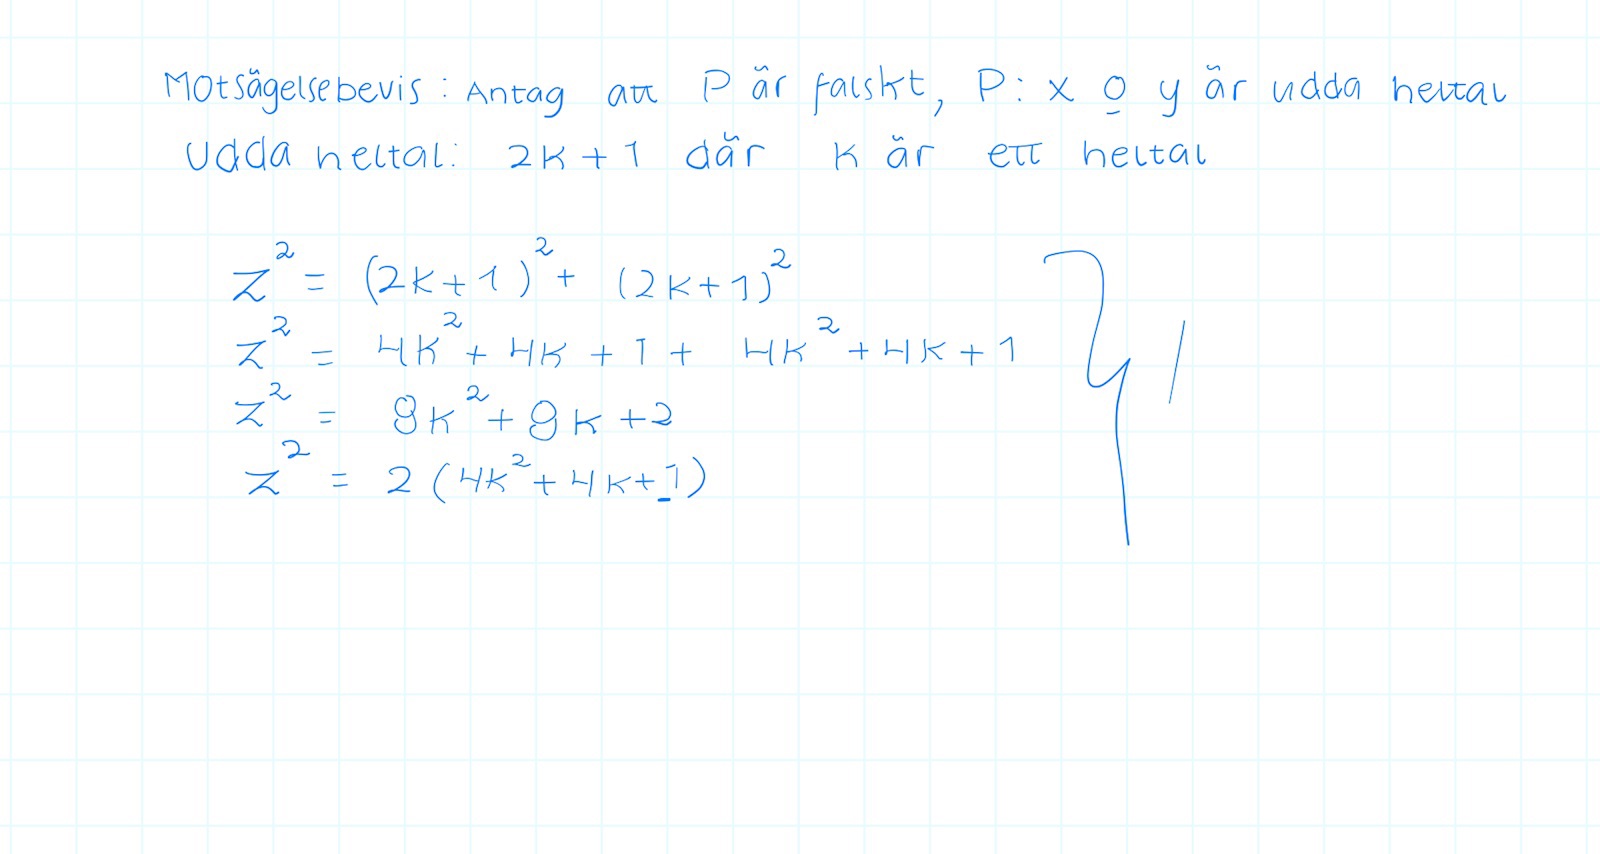 Motsägelsebevis: Antag att P är falskt, P: x o y är udda heltal
Udda heltal: 2k+1 där k är ett heltal
z² = (2k+1)² + (2k+1)²
z² = 4k² + 4k + 1 + 4k² + 4k + 1
z² = 8k² + 8k + 2
z² = 2(4k² + 4k + 1)